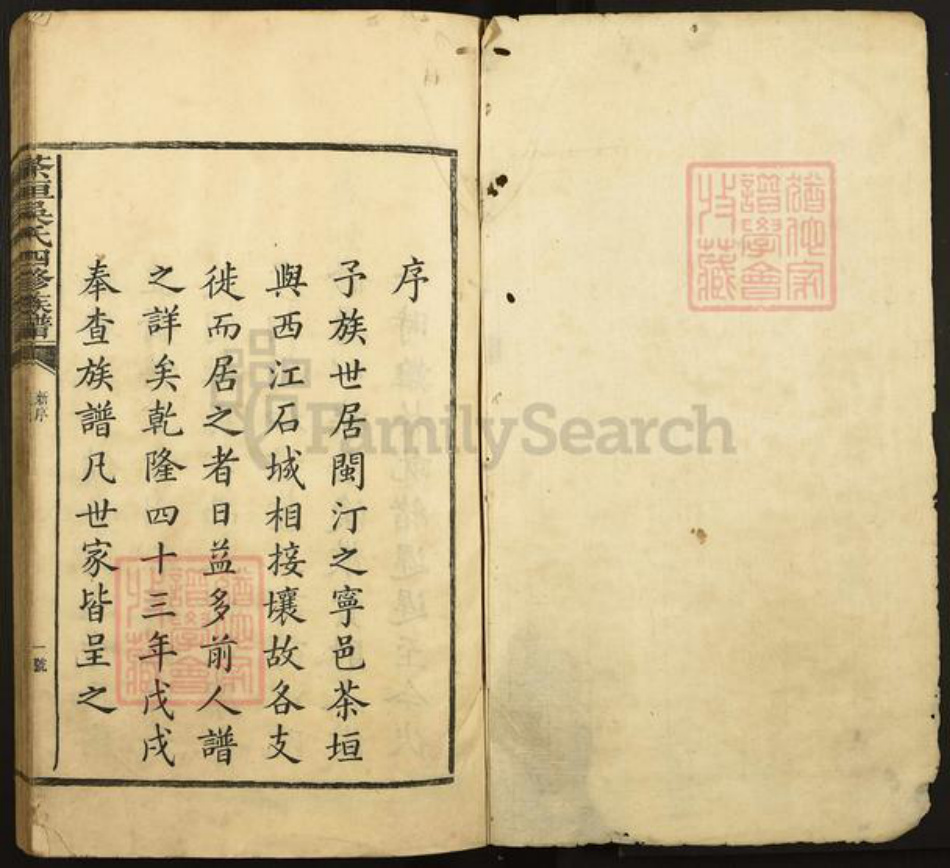 猶他家
譜學會
收藏
序
予族世居閩汀之寧邑茶垣
與西江石城相接壤故各支
徙而居之者日益多前人譜
之詳矣乾隆四十三年戊戌
奉查族譜凡世家皆呈之
茶垣吳氏四修族譜
新序
一號
猶他家
譜學會
收藏
FamilySearch